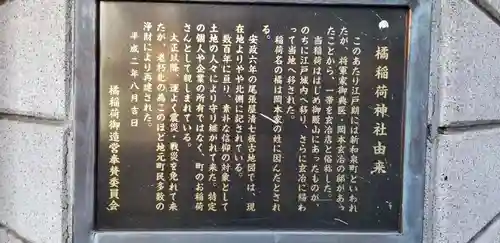 橘稲荷神社由来
このあたり江戸期には新和泉町といわれ
たが、将軍家御典医、岡本玄治の邸があっ
たことから、一帯を玄冶店と俗称した。
当稲荷ははじめ御殿山にあったものが、
のちに江戸城内へ移り、さらに玄冶に賜わ
って当地へ移された。
稲荷名の橘は岡本家の姓に因んだとされ
る。
安政六年の尾張屋清七板古地図では、現
在地よりやや北側に記されている。
数百年に亘り、素朴な信仰の対象として
土地の人々により守り継がれて来た。特定
の個人や企業の所有ではなく、町のお稲荷
さんとして親しまれている。
大正以降、運よく震災、戦災を免れて来
たが、老朽化の為このほど地元町民多数の
浄財により再建された。
平成二年八月吉日
橘稲荷御造営奉賛委員会